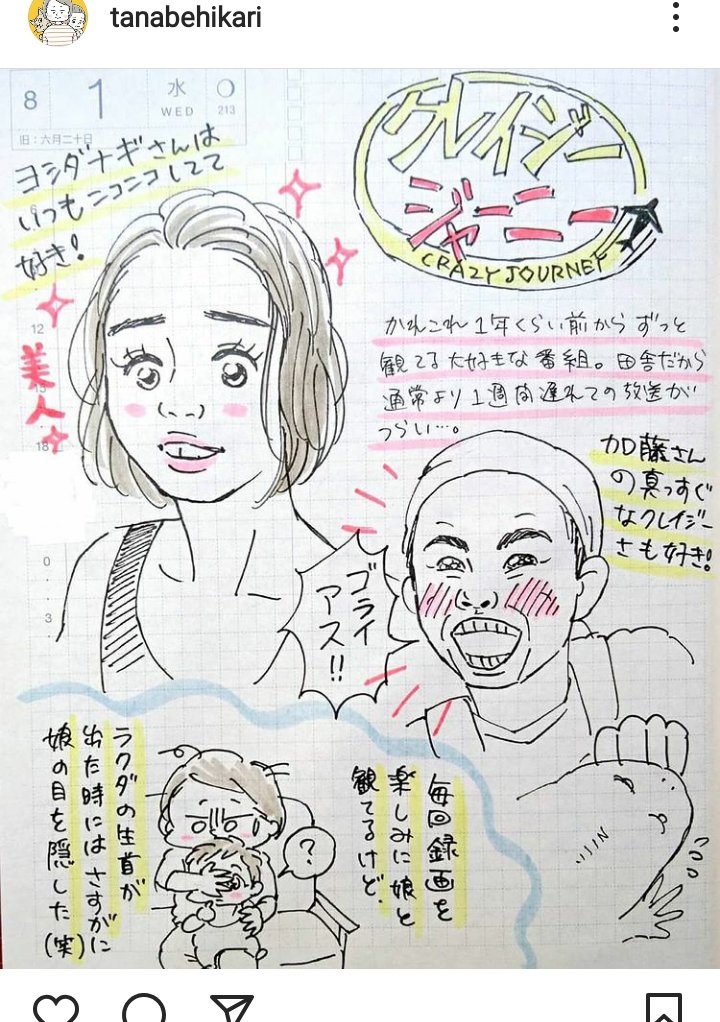 tanabehikari
8
1
水
WED
213
旧：六月二十日
ヨシダナギさんは
いつもニコニコしてて
好き！
美人
クレイジー
ジャーニー
CRAZY JOURNEY
かれこれ1年くらい前からずっと
観てる大好きな番組。田舎だから
通常より1週間遅れての放送が
つらい…。
加藤さん
の真っすぐ
なクレイジー
さも好き！
ゴライ
アス!!
12
18
0
3
毎回録画を
楽しみに娘と
観てるけど、
ラクダの生首が
出た時にはさすがに
娘の目を隠した(笑)
?